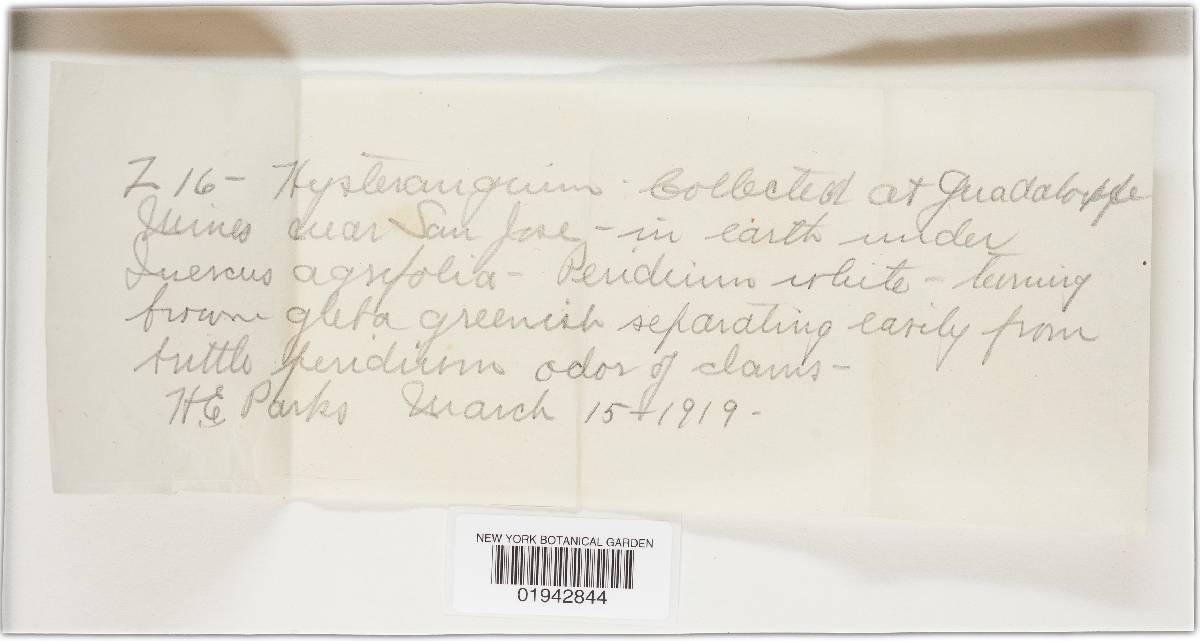 Z 16 - Hysterangium - Collected at Guadaloupe
Mines near San Jose - in earth under
Quercus agrifolia - Peridium white - turning
brown gleba greenish separating easily from
brittle peridium odor of clams -
H.E. Parks March 15 - 1919 -
NEW YORK BOTANICAL GARDEN
01942844